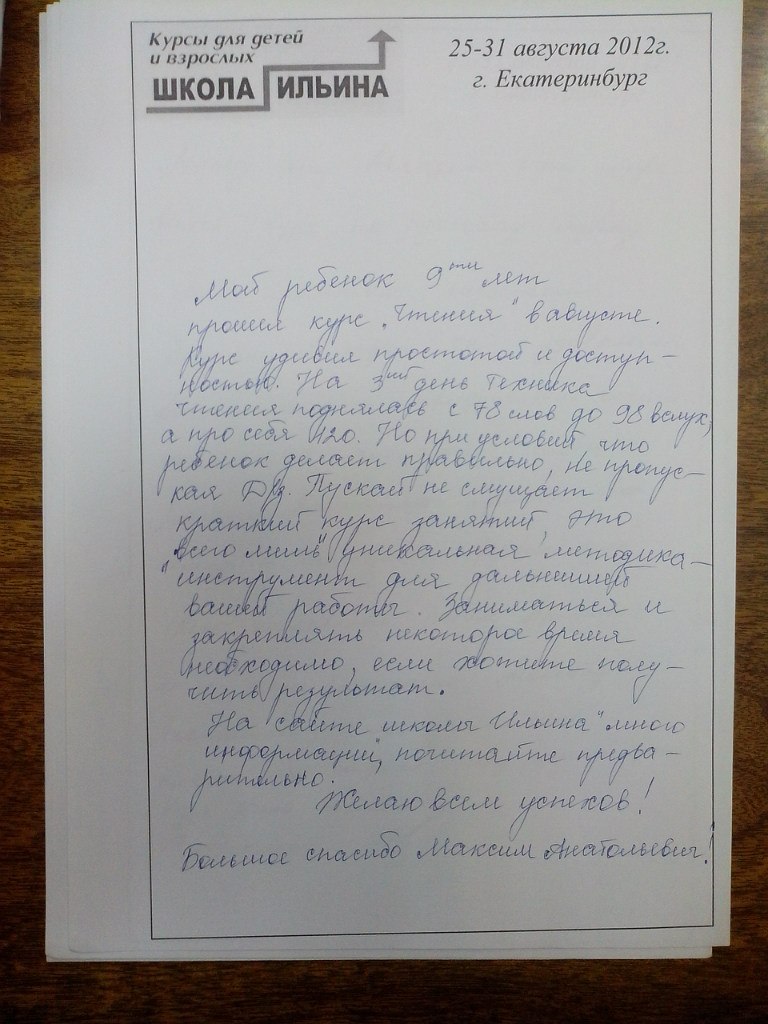 Курсы для детей
и взрослых
ШКОЛА ИЛЬИНА
25-31 августа 2012г.
г. Екатеринбург
Мой ребенок 9ти лет
прошел курс „Чтения" в августе.
Курс удивил простотой и доступ-
ностью. На 3ий день техника
чтения поднялась с 78 слов до 98 вслух,
а про себя 120. Но при условии что
ребенок делает правильно, не пропус-
кая Д/з. Пускай не смущает
краткий курс занятий, это
„всего лишь" уникальная методика-
инструмент для дальнейшей
вашей работы. Заниматься и
закреплять некоторое время
необходимо, если хотите полу-
чить результат.
На сайте школы Ильина" много
информации, почитайте предва-
рительно.
Желаю всем успехов!
Большое спасибо Максим Анатольевич!